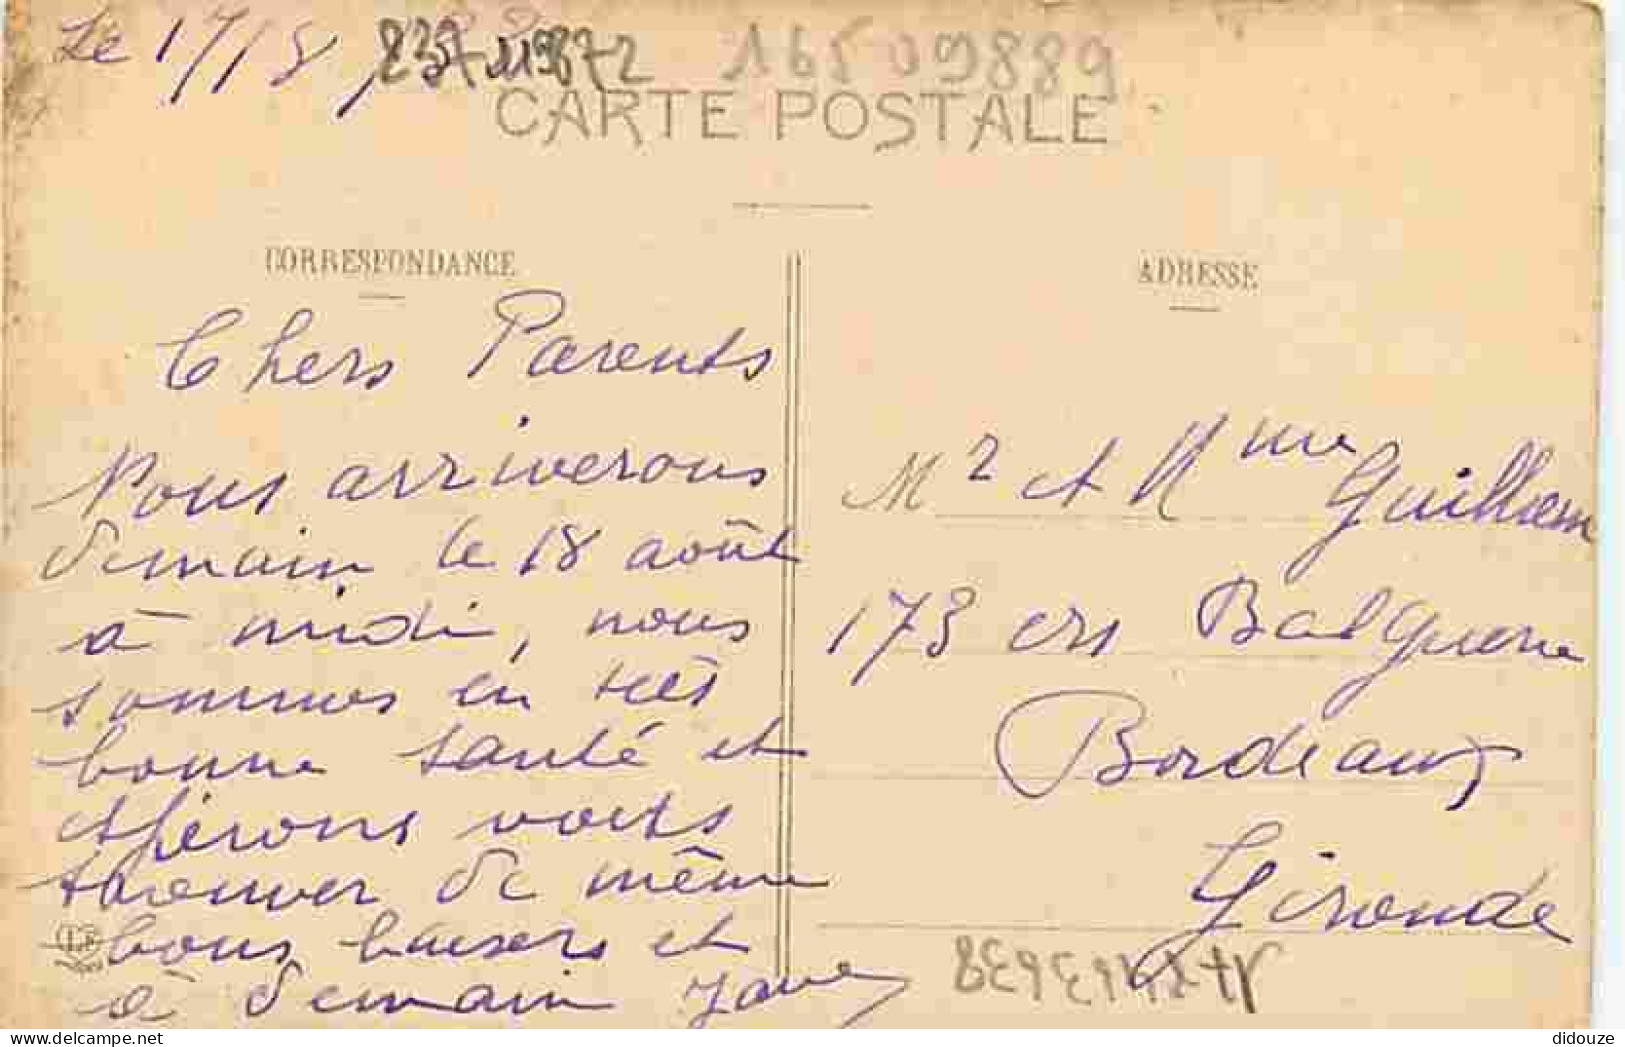 Le 17/8
237119872 16509889
CARTE POSTALE
CORRESPONDANCE
ADRESSE
Chers Parents
Nous arriverons
demain le 18 août
à midi, nous
sommes en très
bonne santé et
espérons vous
trouver de même
bons baisers et
à demain
Mr et Mme Guilhem
173 crs Balguerie
Bordeaux
Gironde
LF
didouze